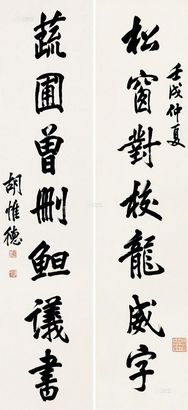 壬戌仲夏
松窗對校龍威字
蔬圃曾刪鉭議書
胡惟德